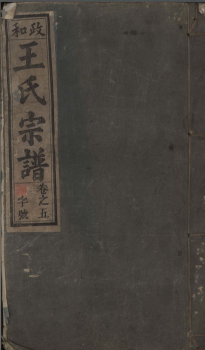 政和
王氏宗譜
卷之五
字號